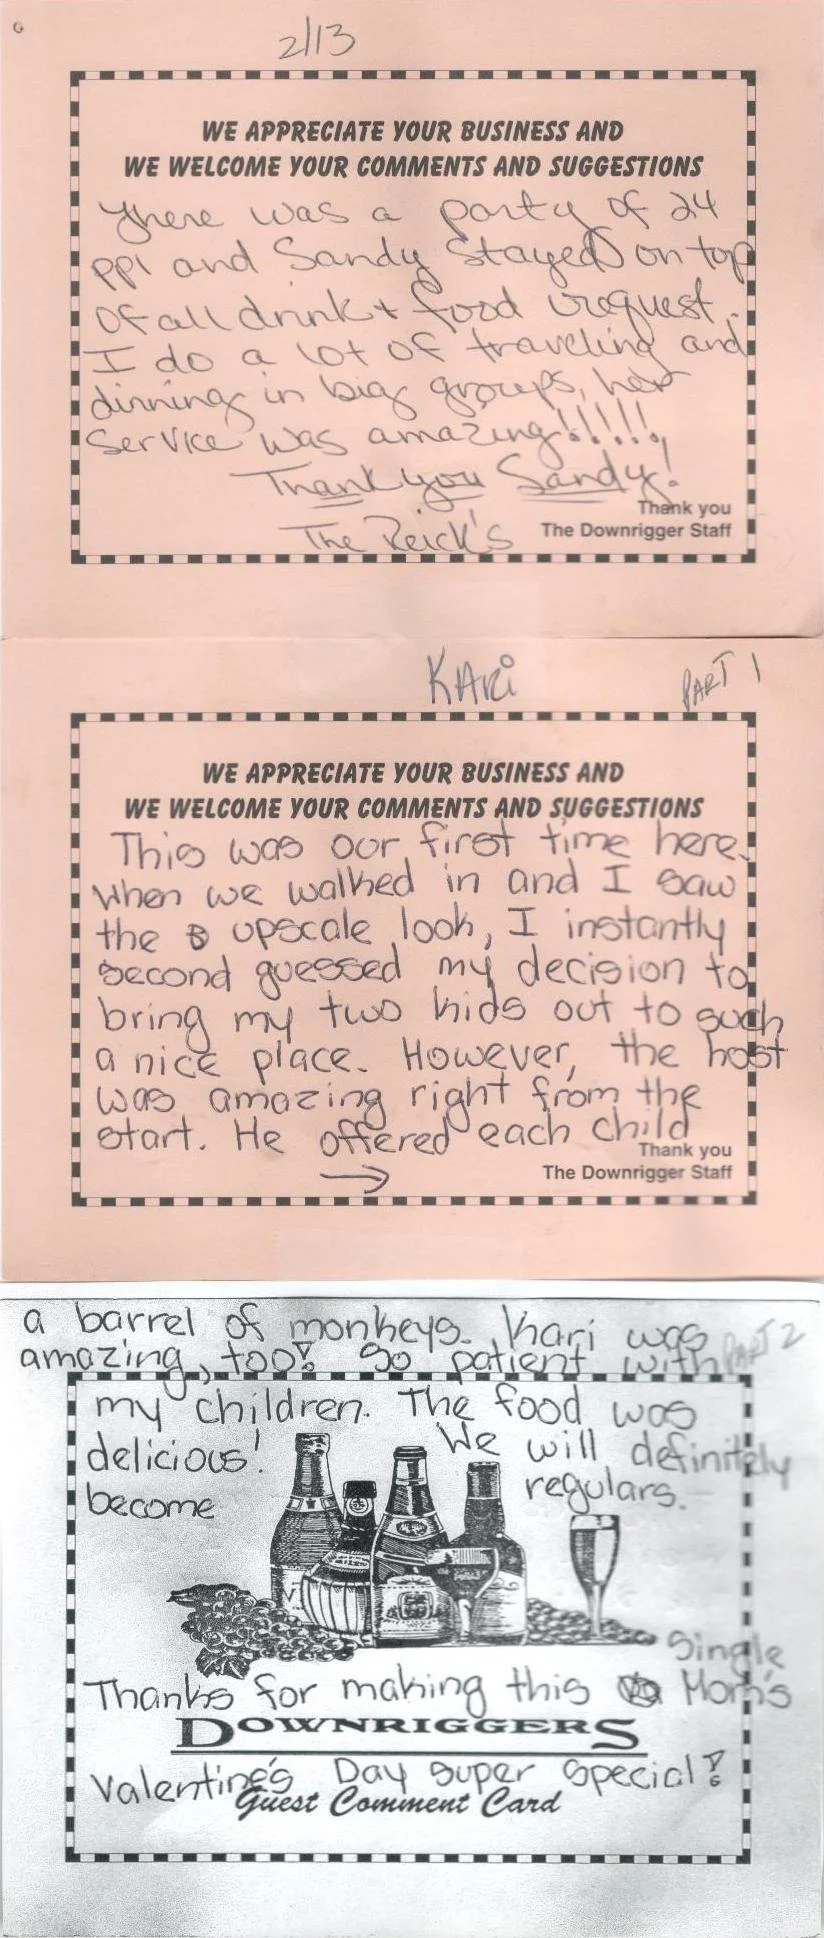 2/13
WE APPRECIATE YOUR BUSINESS AND
WE WELCOME YOUR COMMENTS AND SUGGESTIONS
There was a party of 24
ppl and Sandy stayed on top
of all drink + food request.
I do a lot of traveling and
dinning in big groups, her
service was amazing!!!!!!
Thank you Sandy!
Thank you
The Reick's
The Downrigger Staff
KARi
PART 1
WE APPRECIATE YOUR BUSINESS AND
WE WELCOME YOUR COMMENTS AND SUGGESTIONS
This was our first time here.
When we walked in and I saw
the upscale look, I instantly
second guessed my decision to
bring my two kids out to such
a nice place. However, the host
was amazing right from the
start. He offered each child
Thank you
The Downrigger Staff
a barrel of monkeys. Kari was
PART 2
amazing, too! So patient with
my children. The food was
delicious! We will definitely
become regulars.
Single
Thanks for making this Mom's
DOWNRIGGERS
Valentine's Day super special!
Guest Comment Card